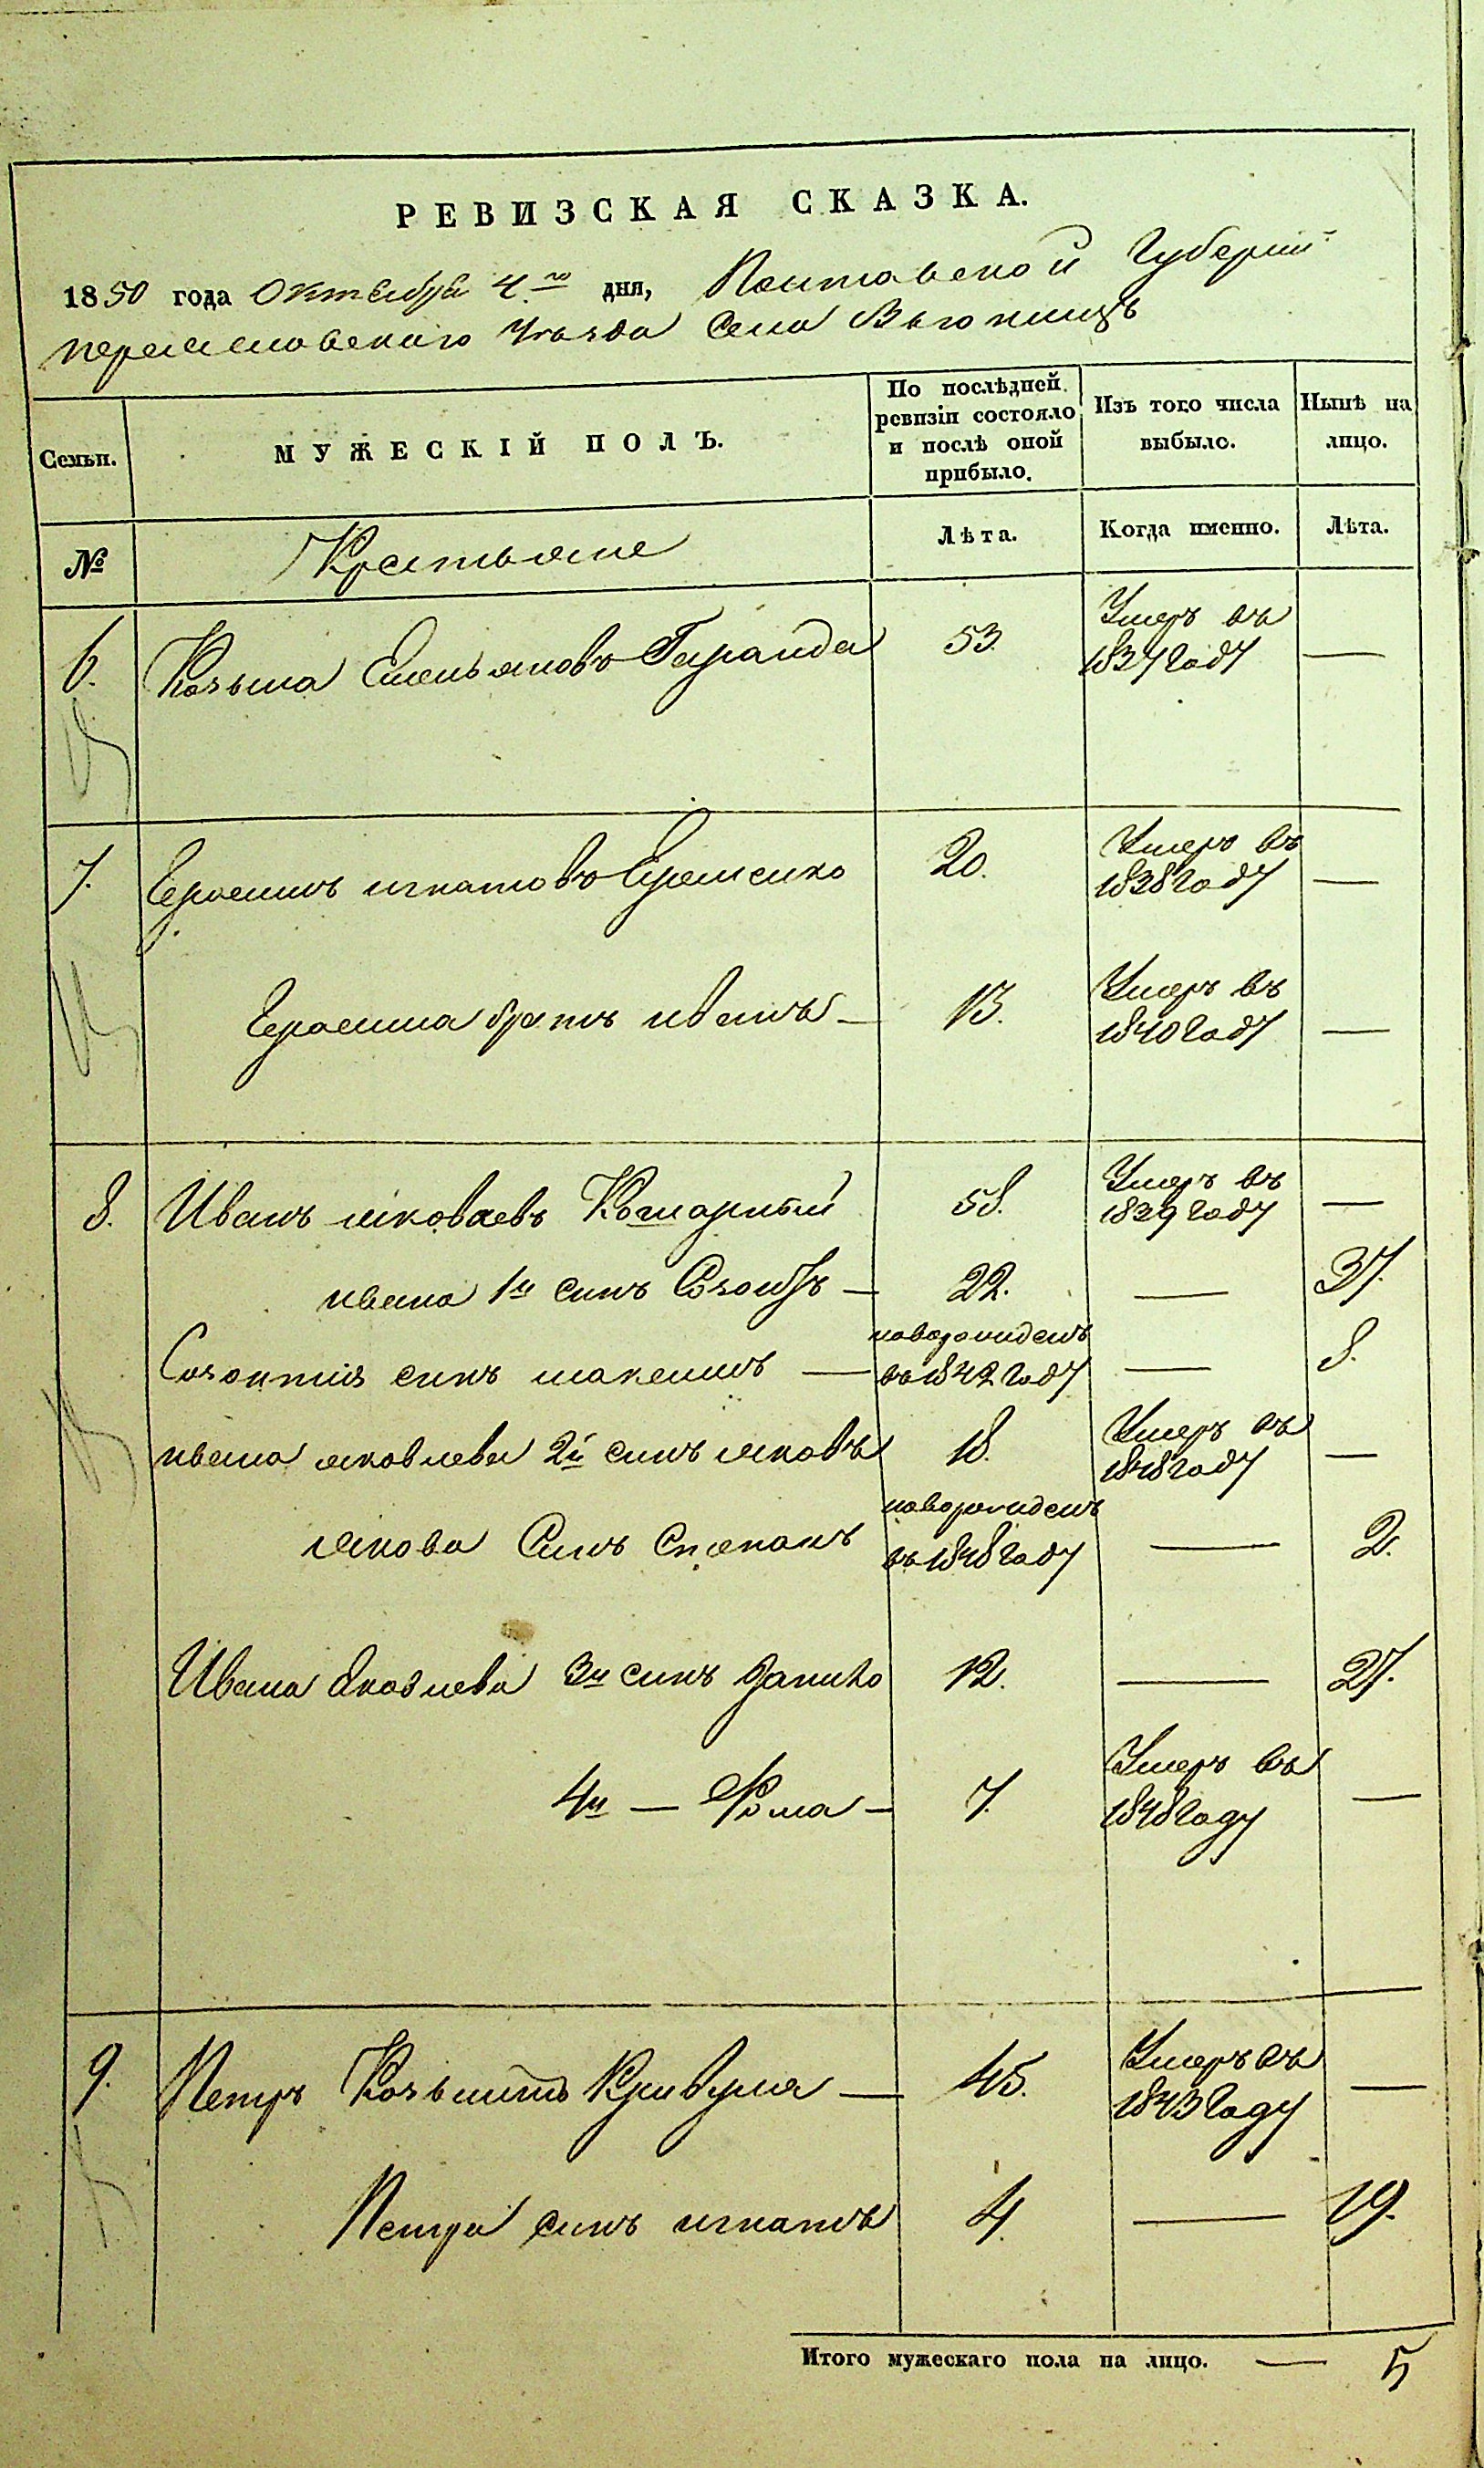 РЕВИЗСКАЯ СКАЗКА.
1850 года Октября 4го дня, Полтавской Губерніи
переяславскаго Уѣзда Села Вьюнищъ
Семьи. МУЖЕСКІЙ ПОЛЪ. По послѣдней ревизіи состояло и послѣ оной прибыло. Изъ того числа выбыло. Нынѣ на лицо.
№ Крестьяне Лѣта. Когда именно. Лѣта.
6. Козьма Емельяновъ Гаранда 53. Умеръ въ 1837 году —
7. Герасимъ игнатовъ 20. Умеръ въ 1838 году —
Герасима братъ иванъ — 13. Умеръ въ 1840 году —
8. Иванъ яковлевъ Кошарный 58. Умеръ въ 1839 году —
ивана 1й синъ — 22. — 37.
Созонтія синъ максимъ — новорожденъ въ 1842 году — 8.
ивана яковлева 2й синъ яковъ 18. Умеръ въ 1848 году —
якова Синъ Степанъ новорожденъ въ 1848 году — 2.
Ивана Яковлева 3й синъ данило 12. — 27.
4й — Фома — 7. Умеръ въ 1848 году —
9. Петръ Козьминъ Кривуша — 45. Умеръ въ 1843 году —
Петра синъ игнатъ 4. — 19.
Итого мужескаго пола на лицо. — 5